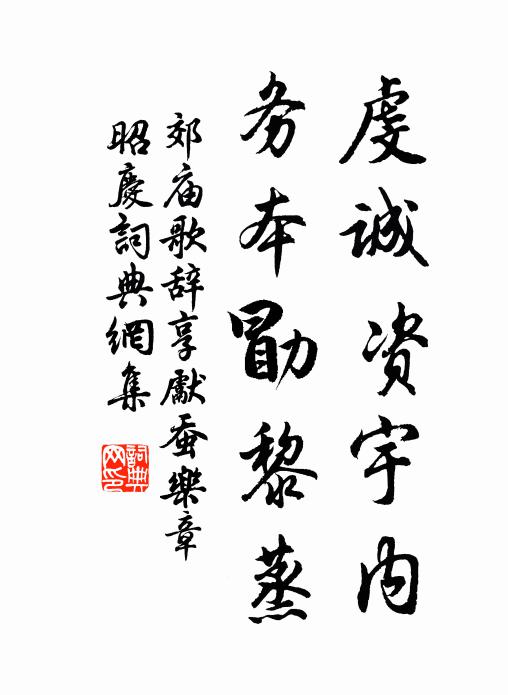 虔诚资宇内
务本勖黎蒸
郊庙歌辞享献蚕樂章
昭慶詞典網集
詞典
网印